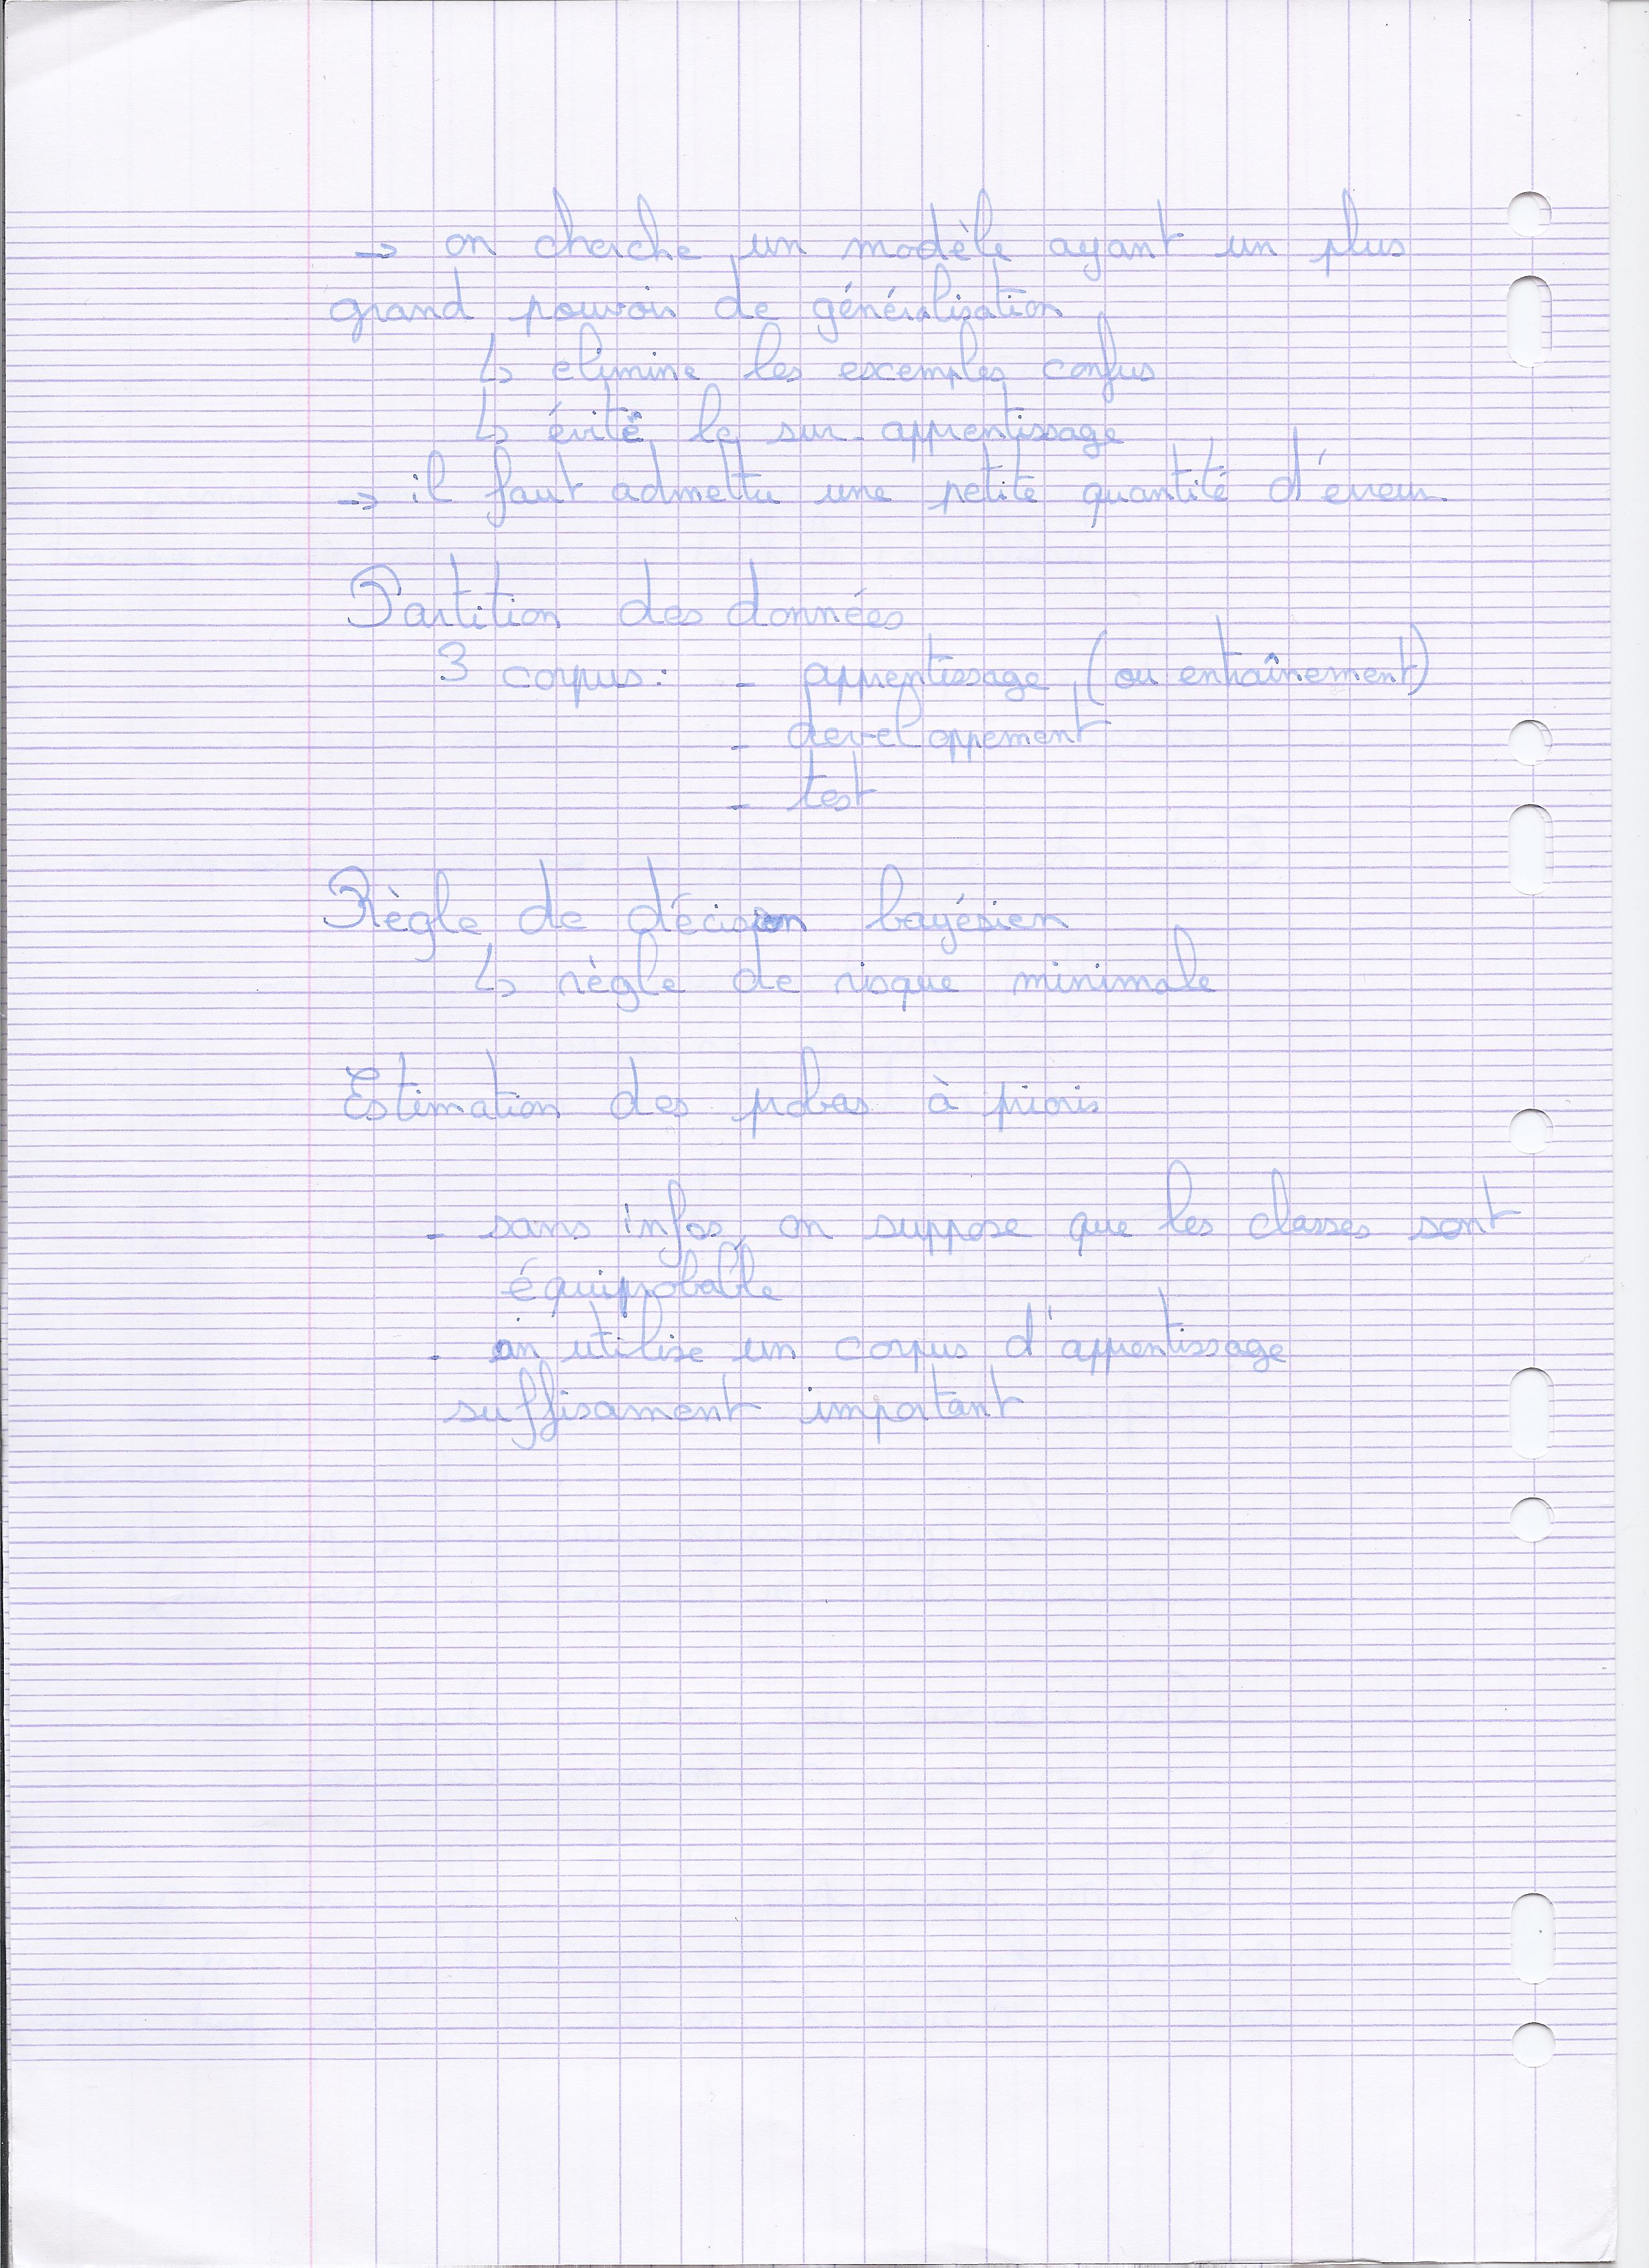 → on cherche un modèle ayant un plus
grand pouvoir de généralisation
↳ elimine les exemples confus
↳ évite le sur-apprentissage
→ il faut admettre une petite quantité d'erreur.
Partition des données
3 corpus : - apprentissage (ou entraînement)
- developpement
- test
Règle de décision bayésien
↳ règle de risque minimale
Estimation des probas à prioris
- sans infos, on suppose que les classes sont
équiprobable
- on utilise un corpus d'apprentissage
suffisament important